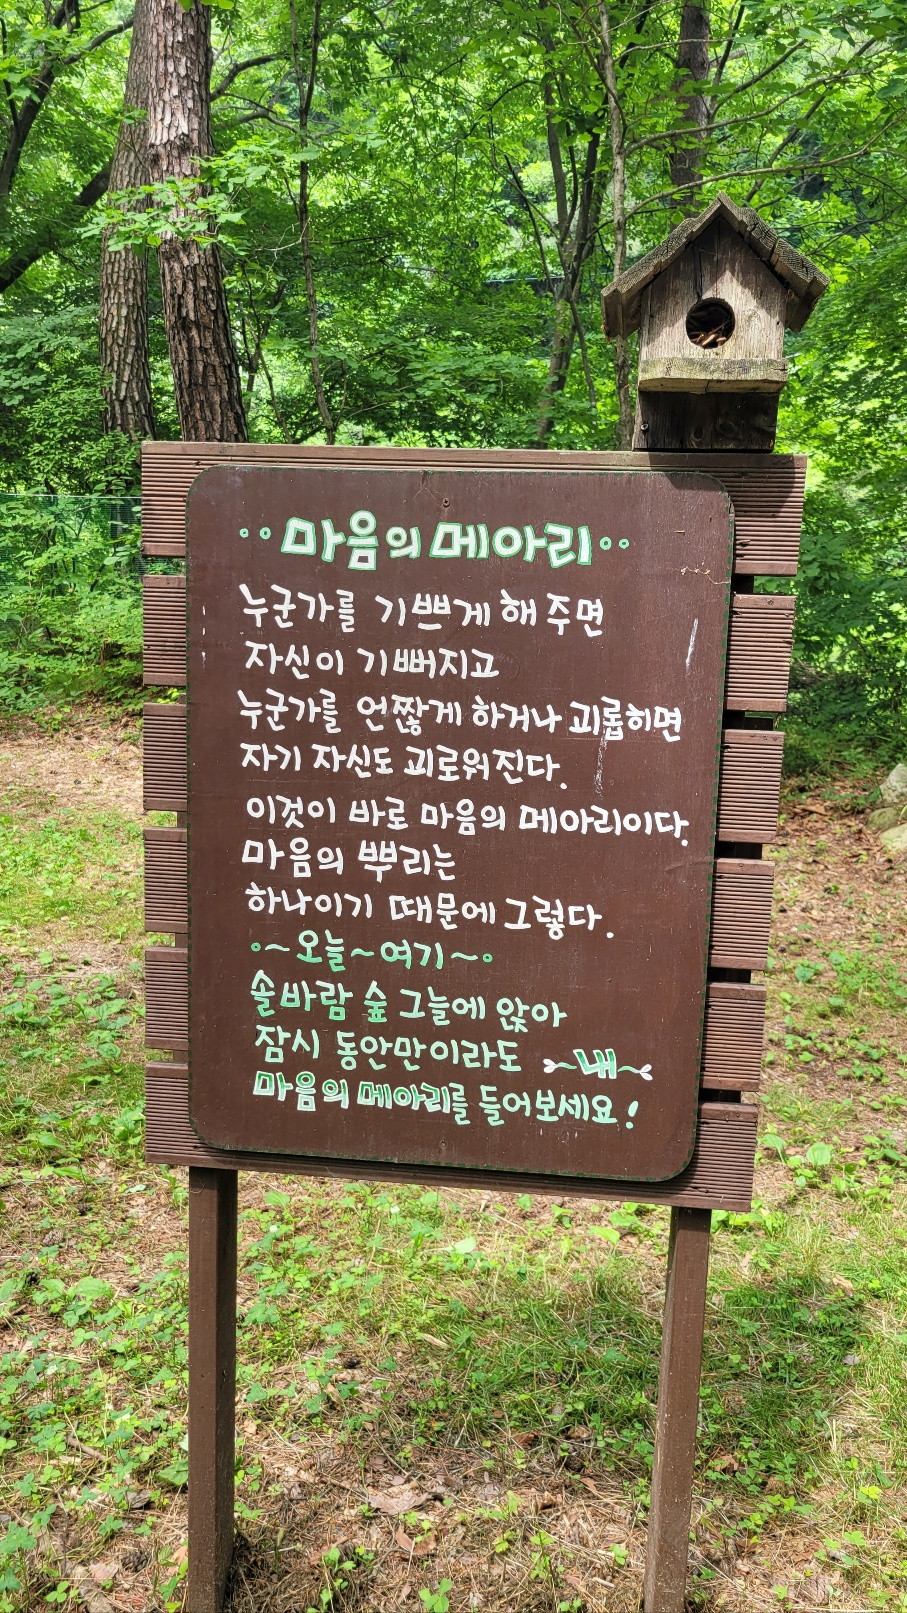 마음의 메아리
누군가를 기쁘게 해 주면
자신이 기뻐지고
누군가를 언짢게 하거나 괴롭히면
자기 자신도 괴로워진다.
이것이 바로 마음의 메아리이다.
마음의 뿌리는
하나이기 때문에 그렇다.
~오늘~여기~
솔바람 숲 그늘에 앉아
잠시 동안만이라도 ~내~
마음의 메아리를 들어보세요!